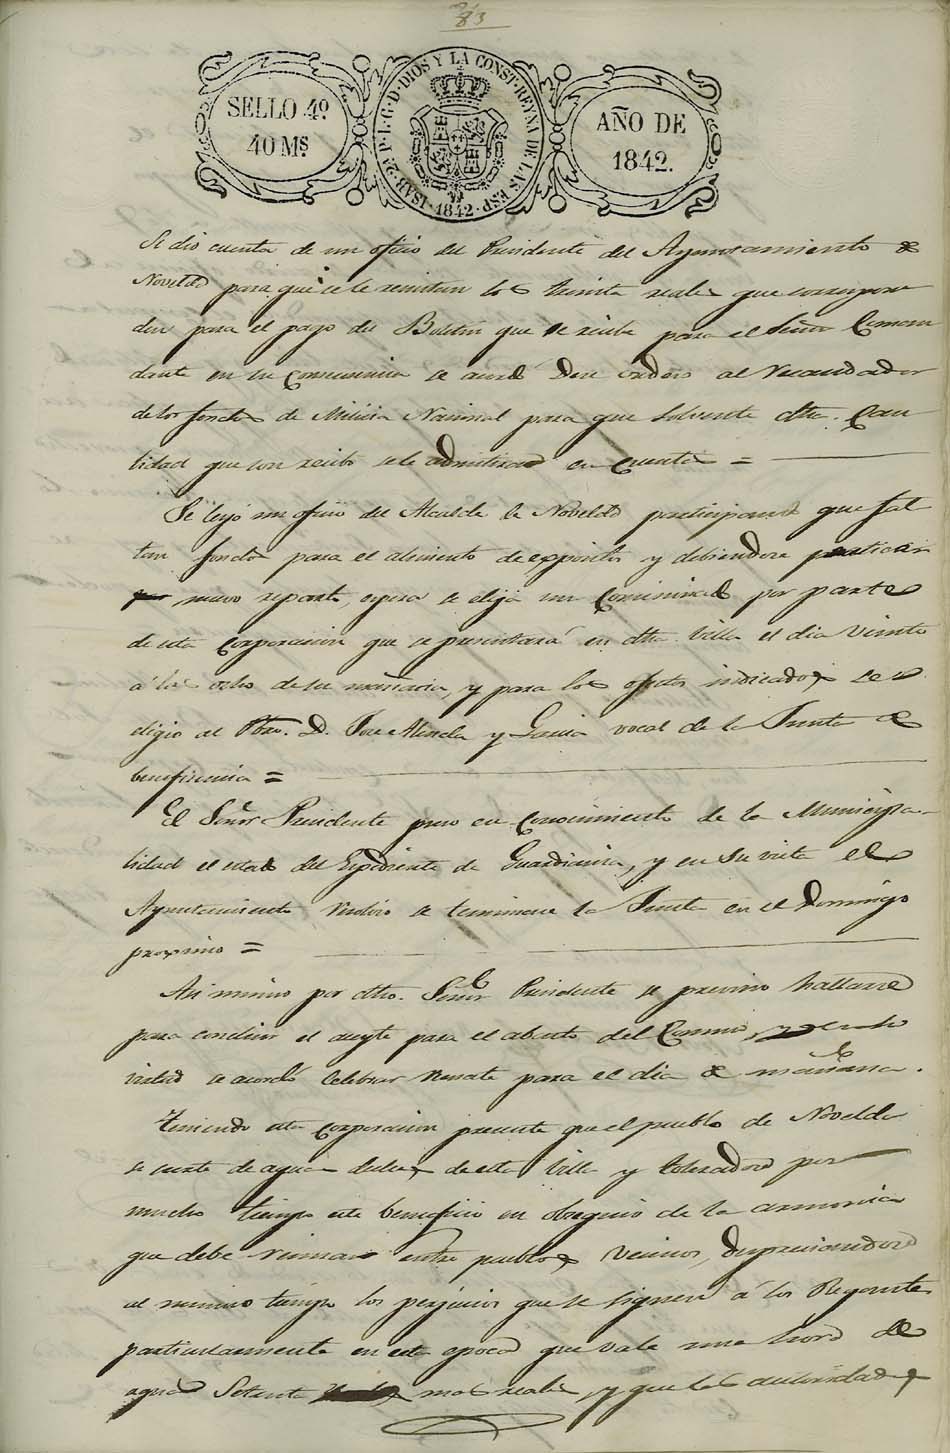 83
SELLO 4º.
40 Mˢ.
ISAB. 2ª P. L. G. D. DIOS Y LA CONST. REYNA DE LAS ESP. 1842
AÑO DE
1842.
Se dio cuenta de un oficio del Presidente del Ayuntamiento de
Novelda para que se le remitan los treinta reales que correspon
den para el pago del Boletin que se recibe para el Señor Coman
dante en su consecuencia se acordó Dar orden al Recaudador
de los fondos de Milicia Nacional para que solvente dha. Can
tidad que con recibo se le admitirá en cuenta =
Se leyó un oficio del Alcalde de Novelda participando que fal
tan fondos para el alimento de expósitos y debiendose practicar
nuevo reparto, espera se elija un Comisionado por parte
de esta Corporacion que se presentará en dha. Villa el dia veinte
á las ocho de su mañana, y para los efectos indicados se e
ligio al Pbro. D. Jose Mira y Garcia vocal de la Junta de
beneficencia =
El Señor Presidente puso en Conocimiento de la Municipa-
lidad el estado del Espediente de Guardianía, y en su vista el
Ayuntamiento se terminase la Junta en el Domingo
proximo =
Asi mismo por dho. Señor Presidente se previno hallarse
para concluir el aceyte para el abasto del Comun, y en su
virtud se acordó Celebrar Remate para el dia de mañana.
Teniendo esta Corporacion presente que el pueblo de Novelda
se surte de aguas dulces de esta Villa y tolerandose por
mucho tiempo este beneficio en obsequio de la armonia
que debe reinar entre pueblos vecinos,
al mismo tiempo los perjuicios que se siguen á los Regantes
particularmente en esta epoca que vale una hora de
agua Setenta mas reales, y que las autoridades